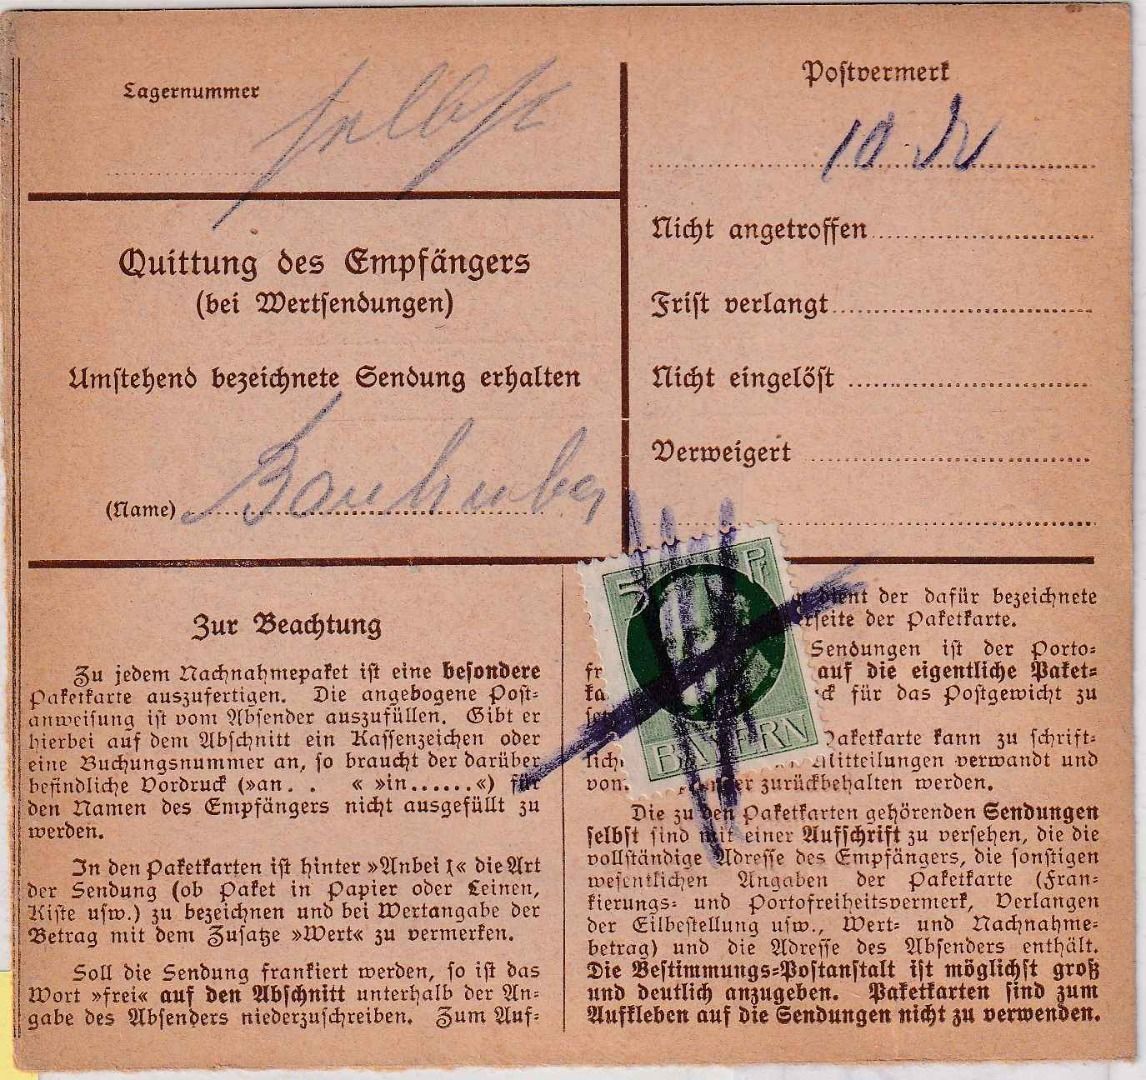 Lagernummer
selbst
Postvermerk
10
Nicht angetroffen
Frist verlangt
Nicht eingelöst
Verweigert
Quittung des Empfängers
(bei Wertsendungen)
Umstehend bezeichnete Sendung erhalten
(Name) Bauhuber
Zur Beachtung
Zu jedem Nachnahmepaket ist eine besondere
Paketkarte auszufertigen. Die angebogene Post-
anweisung ist vom Absender auszufüllen. Gibt er
hierbei auf dem Abschnitt ein Kassenzeichen oder
eine Buchungsnummer an, so braucht der darüber
befindliche Vordruck (»an. . « »in......«) für
den Namen des Empfängers nicht ausgefüllt zu
werden.
In den Paketkarten ist hinter »Anbei 1« die Art
der Sendung (ob Paket in Papier oder Leinen,
Kiste usw.) zu bezeichnen und bei Wertangabe der
Betrag mit dem Zusatze »Wert« zu vermerken.
Soll die Sendung frankiert werden, so ist das
Wort »frei« auf den Abschnitt unterhalb der An-
gabe des Absenders niederzuschreiben. Zum Auf-
5 Pf
BAYERN
dient der dafür bezeichnete
seite der Paketkarte.
Sendungen ist der Porto-
auf die eigentliche Paket-
für das Postgewicht zu
Paketkarte kann zu schrift-
Mitteilungen verwandt und
von zurückbehalten werden.
Die zu den Paketkarten gehörenden Sendungen
selbst sind mit einer Aufschrift zu versehen, die die
vollständige Adresse des Empfängers, die sonstigen
wesentlichen Angaben der Paketkarte (Fran-
kierungs- und Portofreiheitsvermerk, Verlangen
der Eilbestellung usw., Wert- und Nachnahme-
betrag) und die Adresse des Absenders enthält.
Die Bestimmungs-Postanstalt ist möglichst groß
und deutlich anzugeben. Paketkarten sind zum
Aufkleben auf die Sendungen nicht zu verwenden.